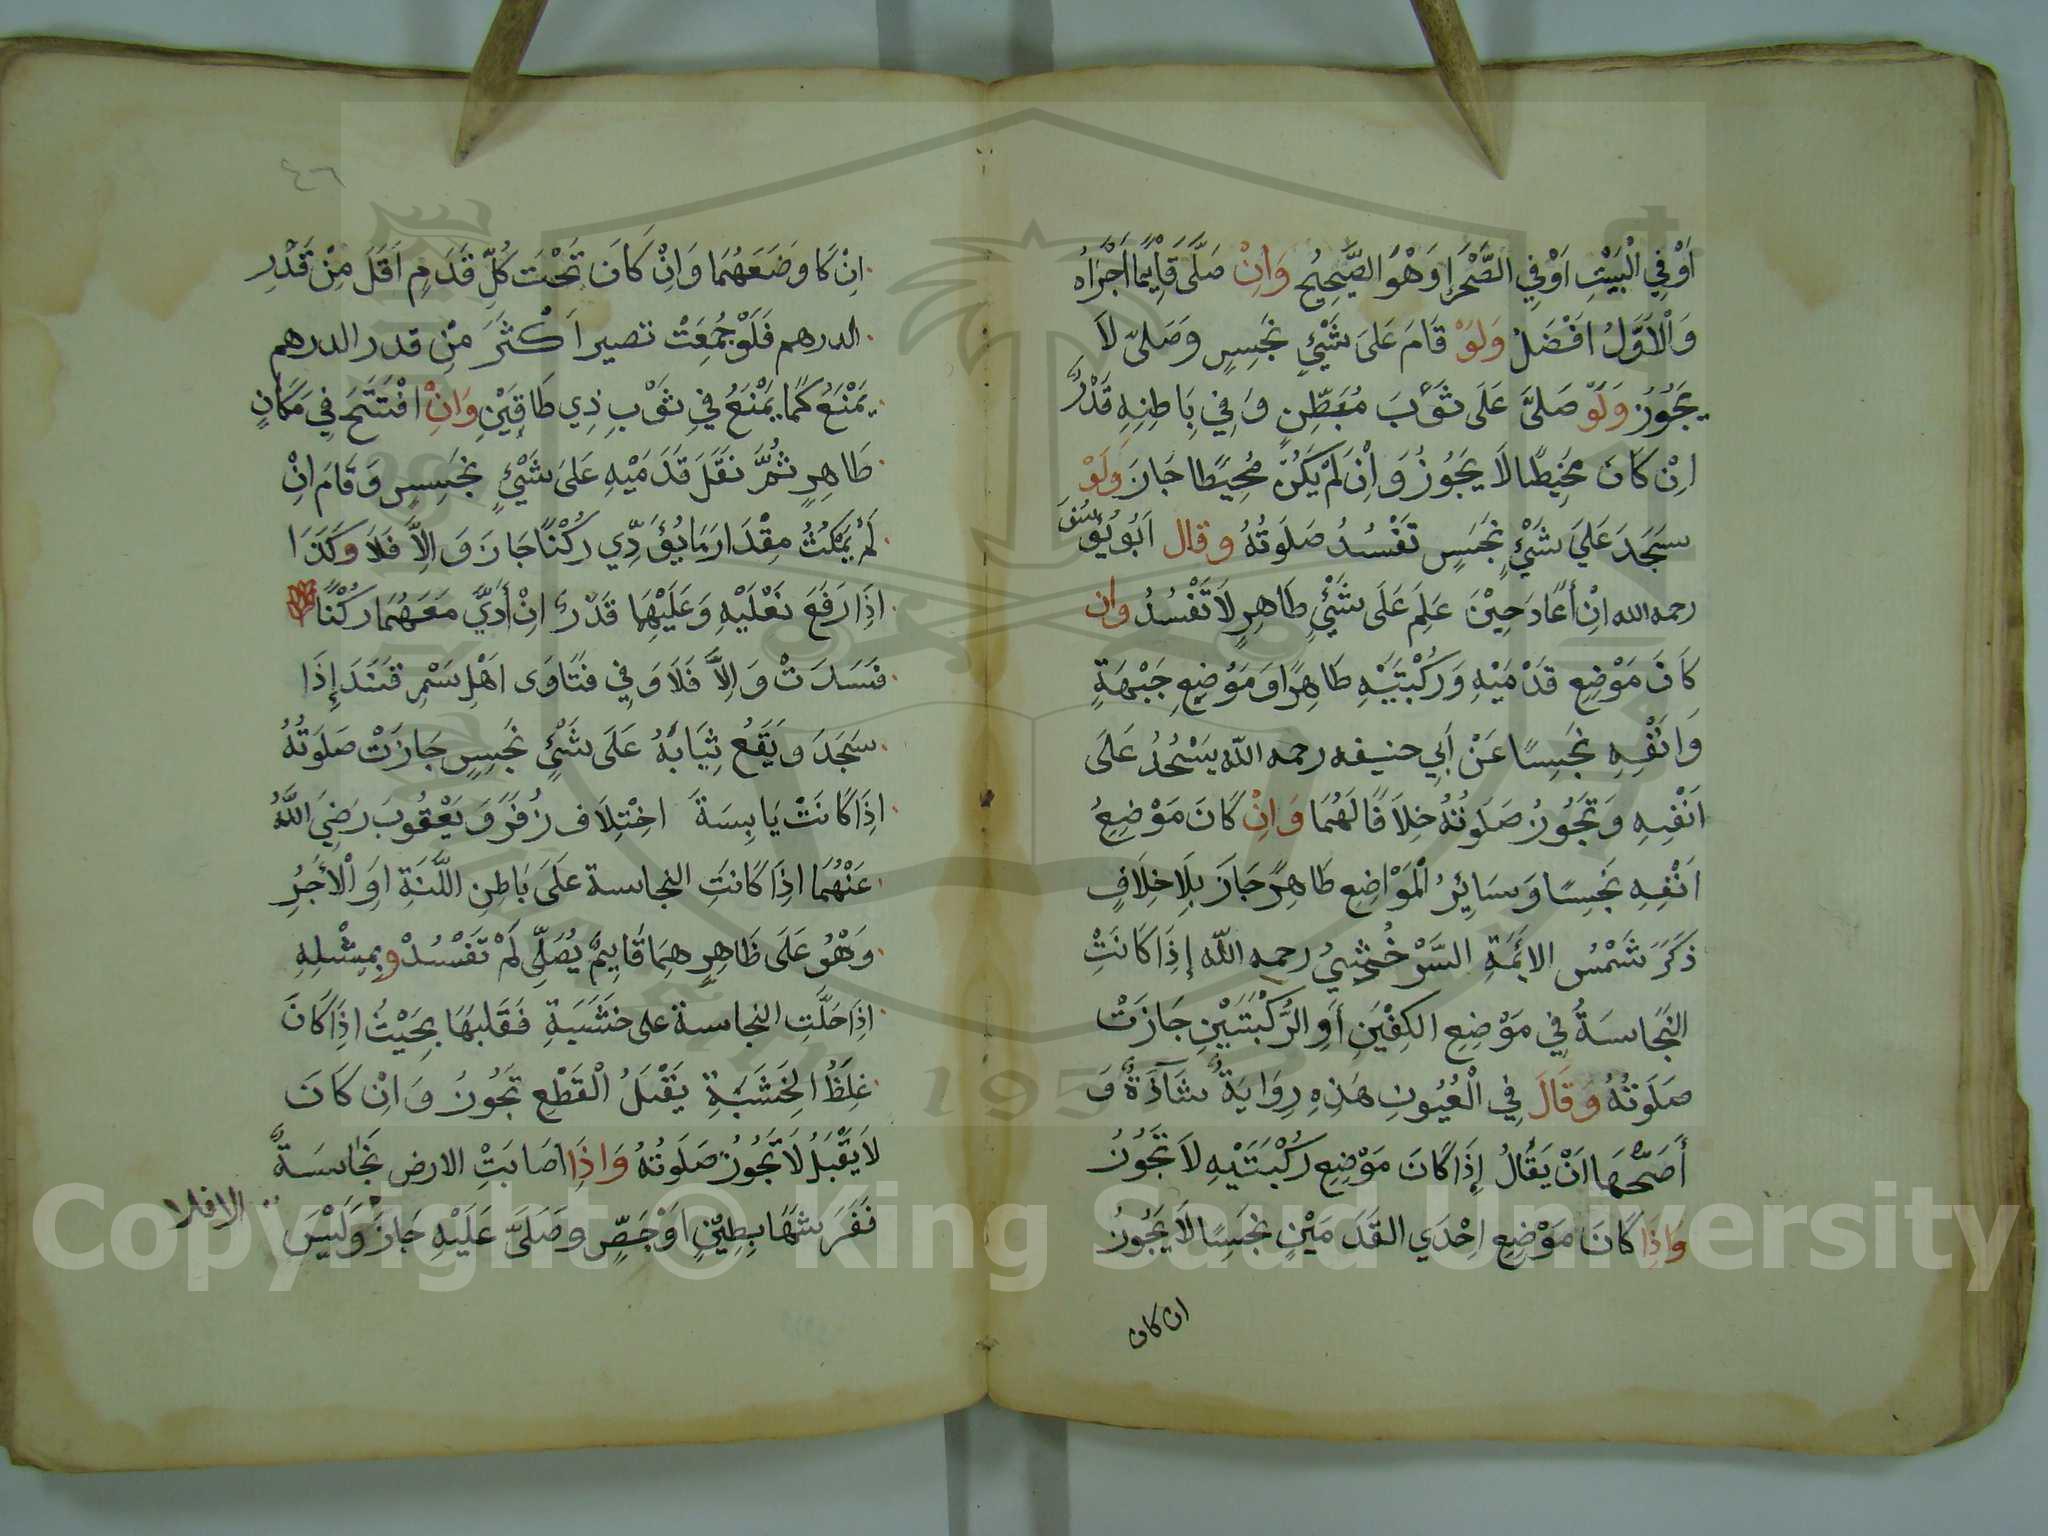 اَوْ فِي الْبَيْتِ اَوْ فِي الصَّحْرَاِ وَهُوَ الصَّحِيْحُ وَاِنْ صَلَّى قَايِمًا اَجْزَاهُ
وَالْاَوَّلُ اَفْضَلُ وَلَوْ قَامَ عَلَى شَيْئٍ نَجَسٍ وَصَلَّى لَا
يَجُوْزُ وَلَوْ صَلَّى عَلَى ثَوْبَ مُبَطَّنٍ وَفِي بَاطِنِهِ قَذْرٌ
اِنْ كَانَ مَخِيْطًا لَا يَجُوْزُ وَاِنْ لَمْ يَكُنْ مُحِيْطًا جَازَ وَلَوْ
سَجَدَ عَلَى شَيْئٍ نَجَسٍ تَفْسُدُ صَلَوتُهُ وقال اَبُو يُوْسُفَ
رحمه الله اِنْ أَعَادَ حِيْنَ عَلِمَ عَلَى شَيْئٍ طَاهِرٍ لَا تَفْسُدُ وان
كَانَ مَوْضِعِ قَدْمَيْهِ وَرُكْبَتَيْهِ طَاهِرًا وَمَوْضِعِ جَبْهَةٍ
وَانْفِهِ نَجِسًا عَنْ اَبِي حنيفه رحمه الله يَسْجُدُ عَلَى
اَنْفِهِ وَتَجُوزُ صَلَوتُهُ خِلَافًا لَهُمَا وَاِنْ كَانَ مَوْضِعُ
اَنْفِهِ نَجِسًا وَسَايِرُ الْمَوَاضِعِ طَاهِرً جَازَ بِلَا خِلَافٍ
ذَكَرَ شَمْسُ الائِمَّةِ السَّرْخُسِيُ رحمه الله إِذَا كَانَتْ
النَّجَاسَةُ فِي مَوْضِعِ الكفَيْنِ أَوِ الرُّكْبَتَيْنِ جَازَتْ
صَلَوتُهُ وَقَالَ فِي الْعُيُونِ هَذِهِ رِوَايَةٌ شَآذَةٌ وَ
أَصَحُّهَا اَنْ يُقَالُ إِذَا كَانَ مَوْضِعِ رُكْبَتَيْهِ لَا تَجُوْزُ
وَاِذَا كَانَ مَوْضِعِ اِحْدَي القَدَمَيْنِ نَجِسًا لَا يَجُوْزُ
ان كان
٤٦
اِنْ كَا وضَعَهُمَا وَاِنْ كَانَ تَحْتَ كُلِّ قَدَمٍ اَقَلَ مِنْ قَدْرِ
الدرهم فَلَوْ جُمِعَتْ تصير اَكْثَرَ مِنْ قدر الدرهم
يَمْنَعُ كَمَا يَمْنَعُ فِي ثَوْبِ ذِي طَاقَيْنِ وَاِنْ افْتَتَحَ فِي مَكَانٍ
طَاهِرٍ ثُمَّ نَقَلَ قَدَمَيْهِ عَلَى شَيْئٍ نَجَسٍ وَقَامَ اِنْ
لَمْ يَمْكُثْ مِقْدَارَ مَا يُؤَدِّي رُكْنًا جَازَ وَاِلَّا فَلَا وكَذَا
اِذَا رَفَعَ نَعْلَيْهِ وَعَلَيْهِمَا قَذَرٌ اِنْ أَدَّى مَعَهُمَا رُكْنًا
فَسَدَتْ وَاِلَّا فَلَا وَفِي فَتَاوَى اَهْلِ سَمَرِقَنَدَ إِذَا
سَجَدَ وَيَقَعُ ثِيَابَهُ عَلَى شَيْئٍ نَجِسٍ جَازَتْ صَلَوتُهُ
اِذَا كَانَتْ يَابِسَةَ اخْتِلَاف زُفَرَ وَيَعْقُوبَ رَضِيَ اللَّهُ
عَنْهُمَا اِذَا كَانَتِ النجاسة عَلَى بَاطِنِ اللَّبَنَةِ اَوِ الْأَجُرِ
وَهُوَ عَلَى ظَاهِرٍ هِمَا قَايِمٌ يُصَلِّى لَمْ تَفْسُدْ وبِمِثْلِهِ
اِذَا حَلَّتِ النجاسة على خَشَبَةٍ فَقَلَبَهَا بِحَيْثُ اِذَا كَانَ
غِلَظُ الخَشَبَةِ يَقْبَلُ الْقَطْعِ تَجُوزُ وَاِنْ كَانَ
لَا يَقْبَلُ لَا تَجُوزُ صَلَوتُهُ وَاِذَا اصَابَتِ الارض نَجَاسَةٌ
فَفَرَشَهَا بِطِيْنٍ اَوْ جَصٍّ وَصَلَّى عَلَيْهِ جَازَ وَلَيْسَ
الا فلا
Copyright © King Saud University